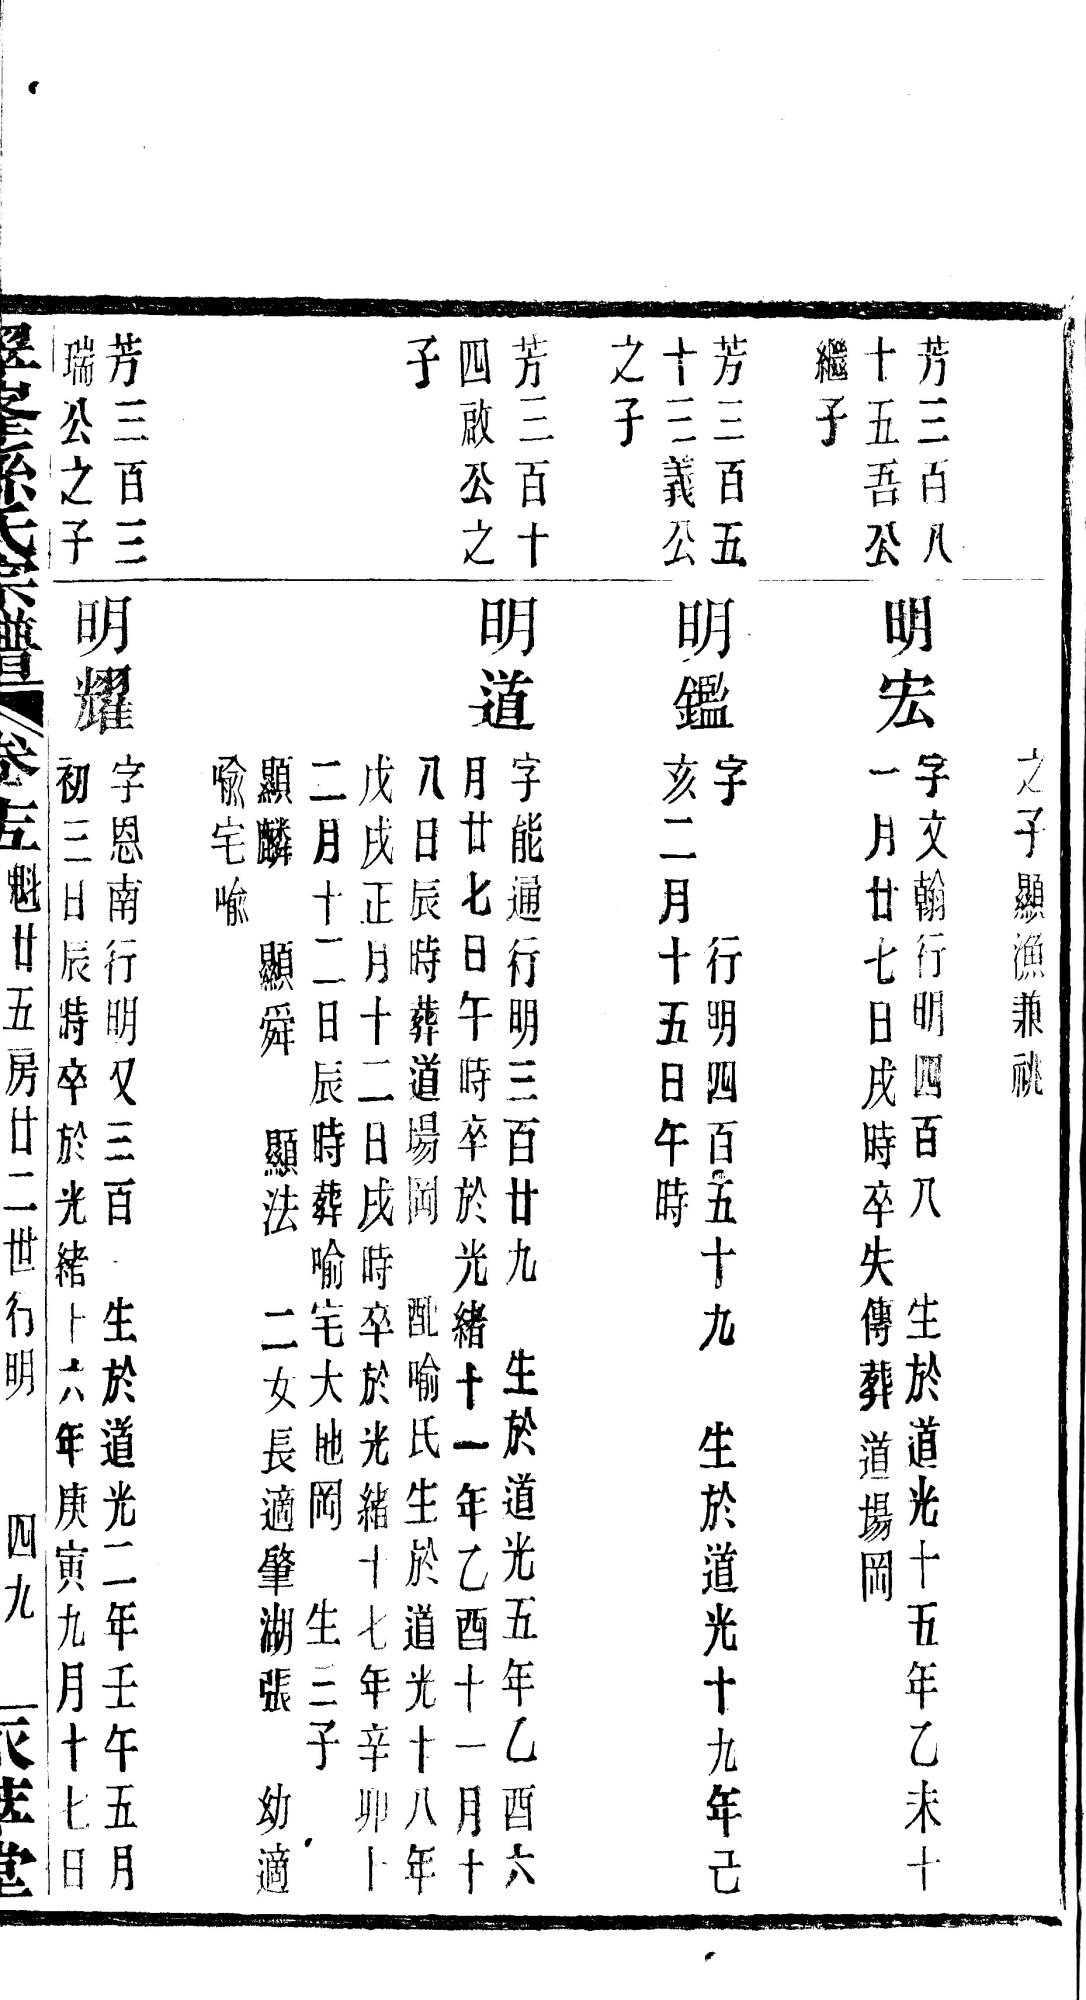 之子顯漁兼祧
芳三百八
十五吾公
繼子
明宏
字文翰行明四百八 生於道光十五年乙未十
一月廿七日戌時卒失傳葬道場岡
芳三百五
十三義公
之子
明鑑
字 行明四百五十九 生於道光十九年己
亥二月十五日午時
芳三百十
四啟公之
子
明道
字能通行明三百廿九 生於道光五年乙酉六
月廿七日午時卒於光緒十一年乙酉十一月十
八日辰時葬道場岡 配喻氏生於道光十八年
戊戌正月十二日戌時卒於光緒十七年辛卯十
二月十二日辰時葬喻宅大地岡 生三子
顯麟 顯舜 顯法 二女長適肇湖張 幼適
喻宅喻
芳三百三
瑞公之子
明耀
字恩南行明又三百 生於道光二年壬午五月
初三日辰時卒於光緒十六年庚寅九月十七日
孫氏宗譜 卷 魁廿五房廿二世行明 四九 堂